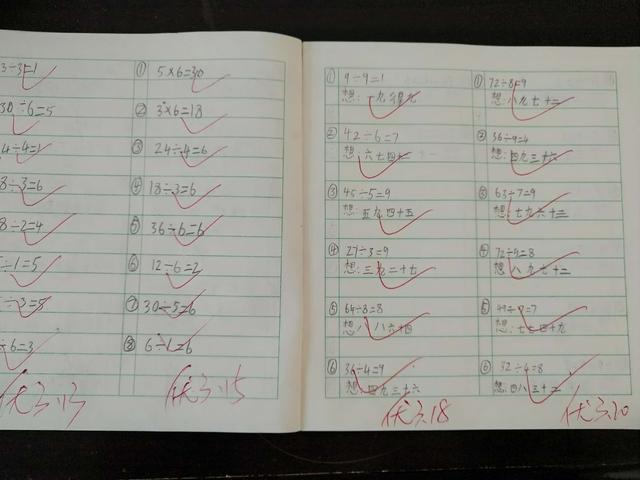 3÷3=1
30÷6=5
4÷4=1
8÷3=6
8÷2=4
÷1=5
÷3=5
÷6=3
优 3.13
① 5×6=30
② 3×6=18
③ 24÷4=6
④ 18÷3=6
⑤ 36÷6=6
⑥ 12÷6=2
⑦ 30÷5=6
⑧ 6÷1=6
优 3.15
① 9÷9=1
想:一九得九
② 42÷6=7
想:六七四十二
③ 45÷5=9
想:五九四十五
④ 27÷3=9
想:三九二十七
⑤ 64÷8=8
想:八八六十四
⑥ 36÷4=9
想:四九三十六
优 3.18
① 72÷8=9
想:八九七十二
② 36÷9=4
想:四九三十六
③ 63÷7=9
想:七九六十三
④ 72÷9=8
想:八九七十二
⑤ 49÷7=7
想:七七四十九
⑥ 32÷4=8
想:四八三十二
优 3.20